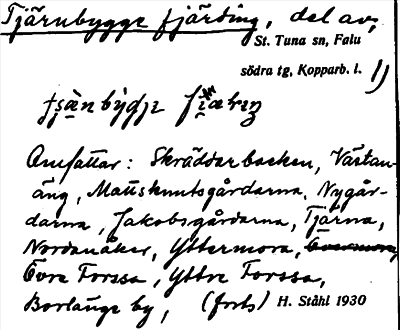 Tjärnbygge fjärding, del av,
St. Tuna sn, Falu
södra tg, Kopparb. l. 1)
Omfattar: Skräddarbacken, Västan-
äng, Mattsknutsgårdarna, Nygår-
darna, Jakobsgårdarna, Tjärna,
Nordanåker, Yttermora,
Övre Forssa, Yttre Forssa,
Borlänge by, (forts) H. Ståhl 1930